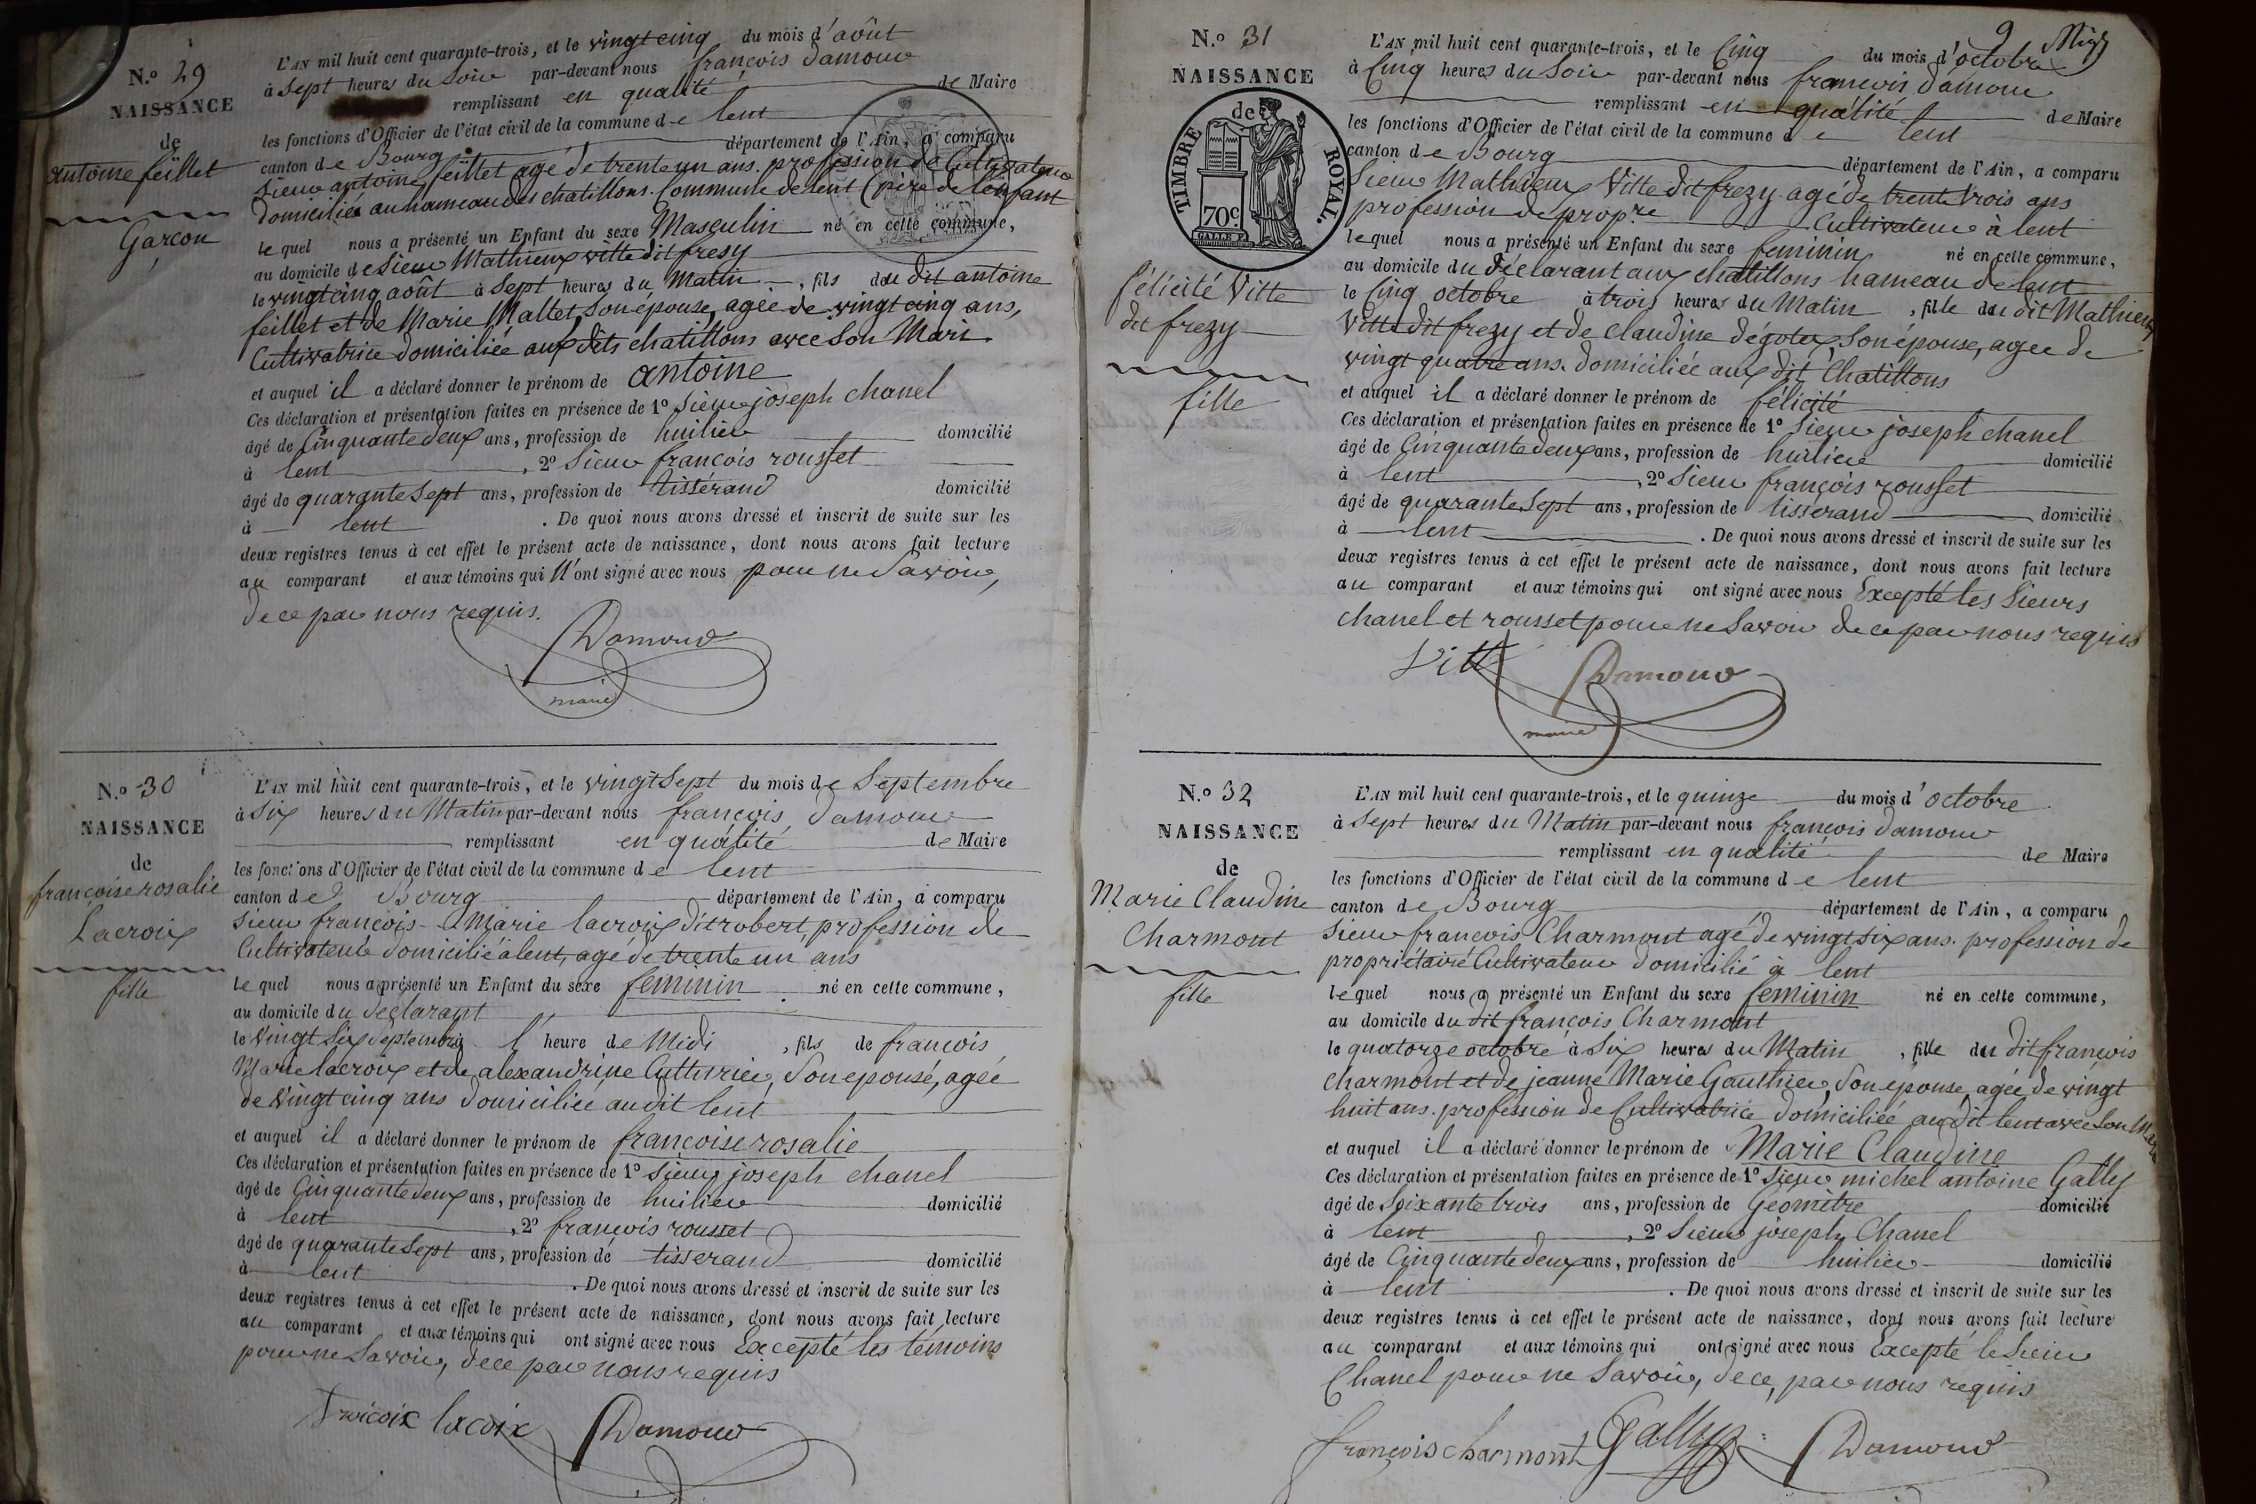 N.º 29
NAISSANCE
de
antoine feillet
Garçon
L'AN mil huit cent quarante-trois, et le vingt cinq du mois d'août
à sept heures du soir par-devant nous françois damour
remplissant en qualité de Maire
les fonctions d'Officier de l'état civil de la commune de lent
canton de Bourg département de l'Ain, a comparu
sieur antoine feillet agé de trente un ans. profession de Cultivateur
domicilié au hameau des chatillons. Commune de lent (père de l'enfant
lequel nous a présenté un Enfant du sexe Masculin né en cette commune,
au domicile de sieur Mathieu vitte dit fresy
le vingt cinq août à sept heures du Matin, fils du dit antoine
feillet et de Marie Mallet, son épouse, agée de vingt cinq ans,
Cultivatrice domiciliée aux dits chatillons avec son Mari.
et auquel il a déclaré donner le prénom de antoine
Ces déclaration et présentation faites en présence de 1º sieur joseph chanel
âgé de Cinquante deux ans, profession de huilier domicilié
à lent, 2º sieur françois rousset
âgé de quarante sept ans, profession de tisserand domicilié
à lent. De quoi nous avons dressé et inscrit de suite sur les
deux registres tenus à cet effet le présent acte de naissance, dont nous avons fait lecture
au comparant et aux témoins qui n'ont signé avec nous pour ne savoir,
de ce par nous requis.
Damour
maire
N.º 30
NAISSANCE
de
françoise rosalie
Lacroix
fille
L'AN mil huit cent quarante-trois, et le vingt sept du mois de septembre
à six heures du Matin par-devant nous françois damour
remplissant en qualité de Maire
les fonctions d'Officier de l'état civil de la commune de lent
canton de Bourg département de l'Ain, a comparu
sieur françois Marie lacroix dit robert, profession de
Cultivateur domicilié à lent, agé de trente un ans
lequel nous a présenté un Enfant du sexe feminin né en cette commune,
au domicile du déclarant
le vingt six septembre l'heure de Midi, fils de françois
Marie lacroix et de alexandrine Cutturier, son epouse, agée
de vingt cinq ans domiciliée audit lent
et auquel il a déclaré donner le prénom de françoise rosalie
Ces déclaration et présentation faites en présence de 1º sieur joseph chanel
âgé de Cinquante deux ans, profession de huilier domicilié
à lent, 2º françois rousset
âgé de quarante sept ans, profession de tisserand domicilié
à lent. De quoi nous avons dressé et inscrit de suite sur les
deux registres tenus à cet effet le présent acte de naissance, dont nous avons fait lecture
au comparant et aux témoins qui ont signé avec nous Excepté les témoins
pour ne savoir, de ce par nous requis
lacoix Damour
9
N.º 31
NAISSANCE
de
TIMBRE ROYAL.
70c.
félicité Vitte
dit frezy
fille
L'AN mil huit cent quarante-trois, et le Cinq du mois d'octobre
à Cinq heures du soir par-devant nous françois damour
remplissant en qualité de Maire
les fonctions d'Officier de l'état civil de la commune de lent
canton de Bourg département de l'Ain, a comparu
sieur Mathieu Vitte dit frezy agé de trente trois ans
profession de propre Cultivateur à lent
lequel nous a présenté un Enfant du sexe feminin né en cette commune,
au domicile du déclarant aux chatillons hameau de lent
le Cinq octobre à trois heures du Matin, fille du dit Mathieu
Vitte dit frezy et de claudine dégotex, son épouse, agée de
vingt quatre ans. domiciliée aux dit Chatillons
et auquel il a déclaré donner le prénom de félicité
Ces déclaration et présentation faites en présence de 1º sieur joseph chanel
âgé de Cinquante deux ans, profession de huilier domicilié
à lent, 2º sieur françois rousset
âgé de quarante sept ans, profession de tisserand domicilié
à lent. De quoi nous avons dressé et inscrit de suite sur les
deux registres tenus à cet effet le présent acte de naissance, dont nous avons fait lecture
au comparant et aux témoins qui ont signé avec nous Excepté les sieurs
chanel et rousset pour ne savoir de ce par nous requis
Vitte Damour
maire
N.º 32
NAISSANCE
de
Marie Claudine
Charmont
fille
L'AN mil huit cent quarante-trois, et le quinze du mois d'octobre
à sept heures du Matin par-devant nous françois damour
remplissant en qualité de Maire
les fonctions d'Officier de l'état civil de la commune de lent
canton de Bourg département de l'Ain, a comparu
sieur françois Charmont agé de vingt six ans. profession de
propriétaire Cultivateur domicilié à lent
lequel nous a présenté un Enfant du sexe feminin né en cette commune,
au domicile du dit françois Charmont
le quatorze octobre à six heures du Matin, fille du dit françois
charmont et de jeanne Marie Gauthier, son épouse, agée de vingt
huit ans. profession de Cultivatrice domiciliée audit lent avec son Mari
et auquel il a déclaré donner le prénom de Marie Claudine
Ces déclaration et présentation faites en présence de 1º sieur michel antoine Gally
âgé de soixante trois ans, profession de Géomètre domicilié
à lent, 2º sieur joseph Chanel
âgé de Cinquante deux ans, profession de huilier domicilié
à lent. De quoi nous avons dressé et inscrit de suite sur les
deux registres tenus à cet effet le présent acte de naissance, dont nous avons fait lecture
au comparant et aux témoins qui ont signé avec nous Excepté le sieur
Chanel pour ne savoir, de ce, par nous requis
françois charmont Gally Damour